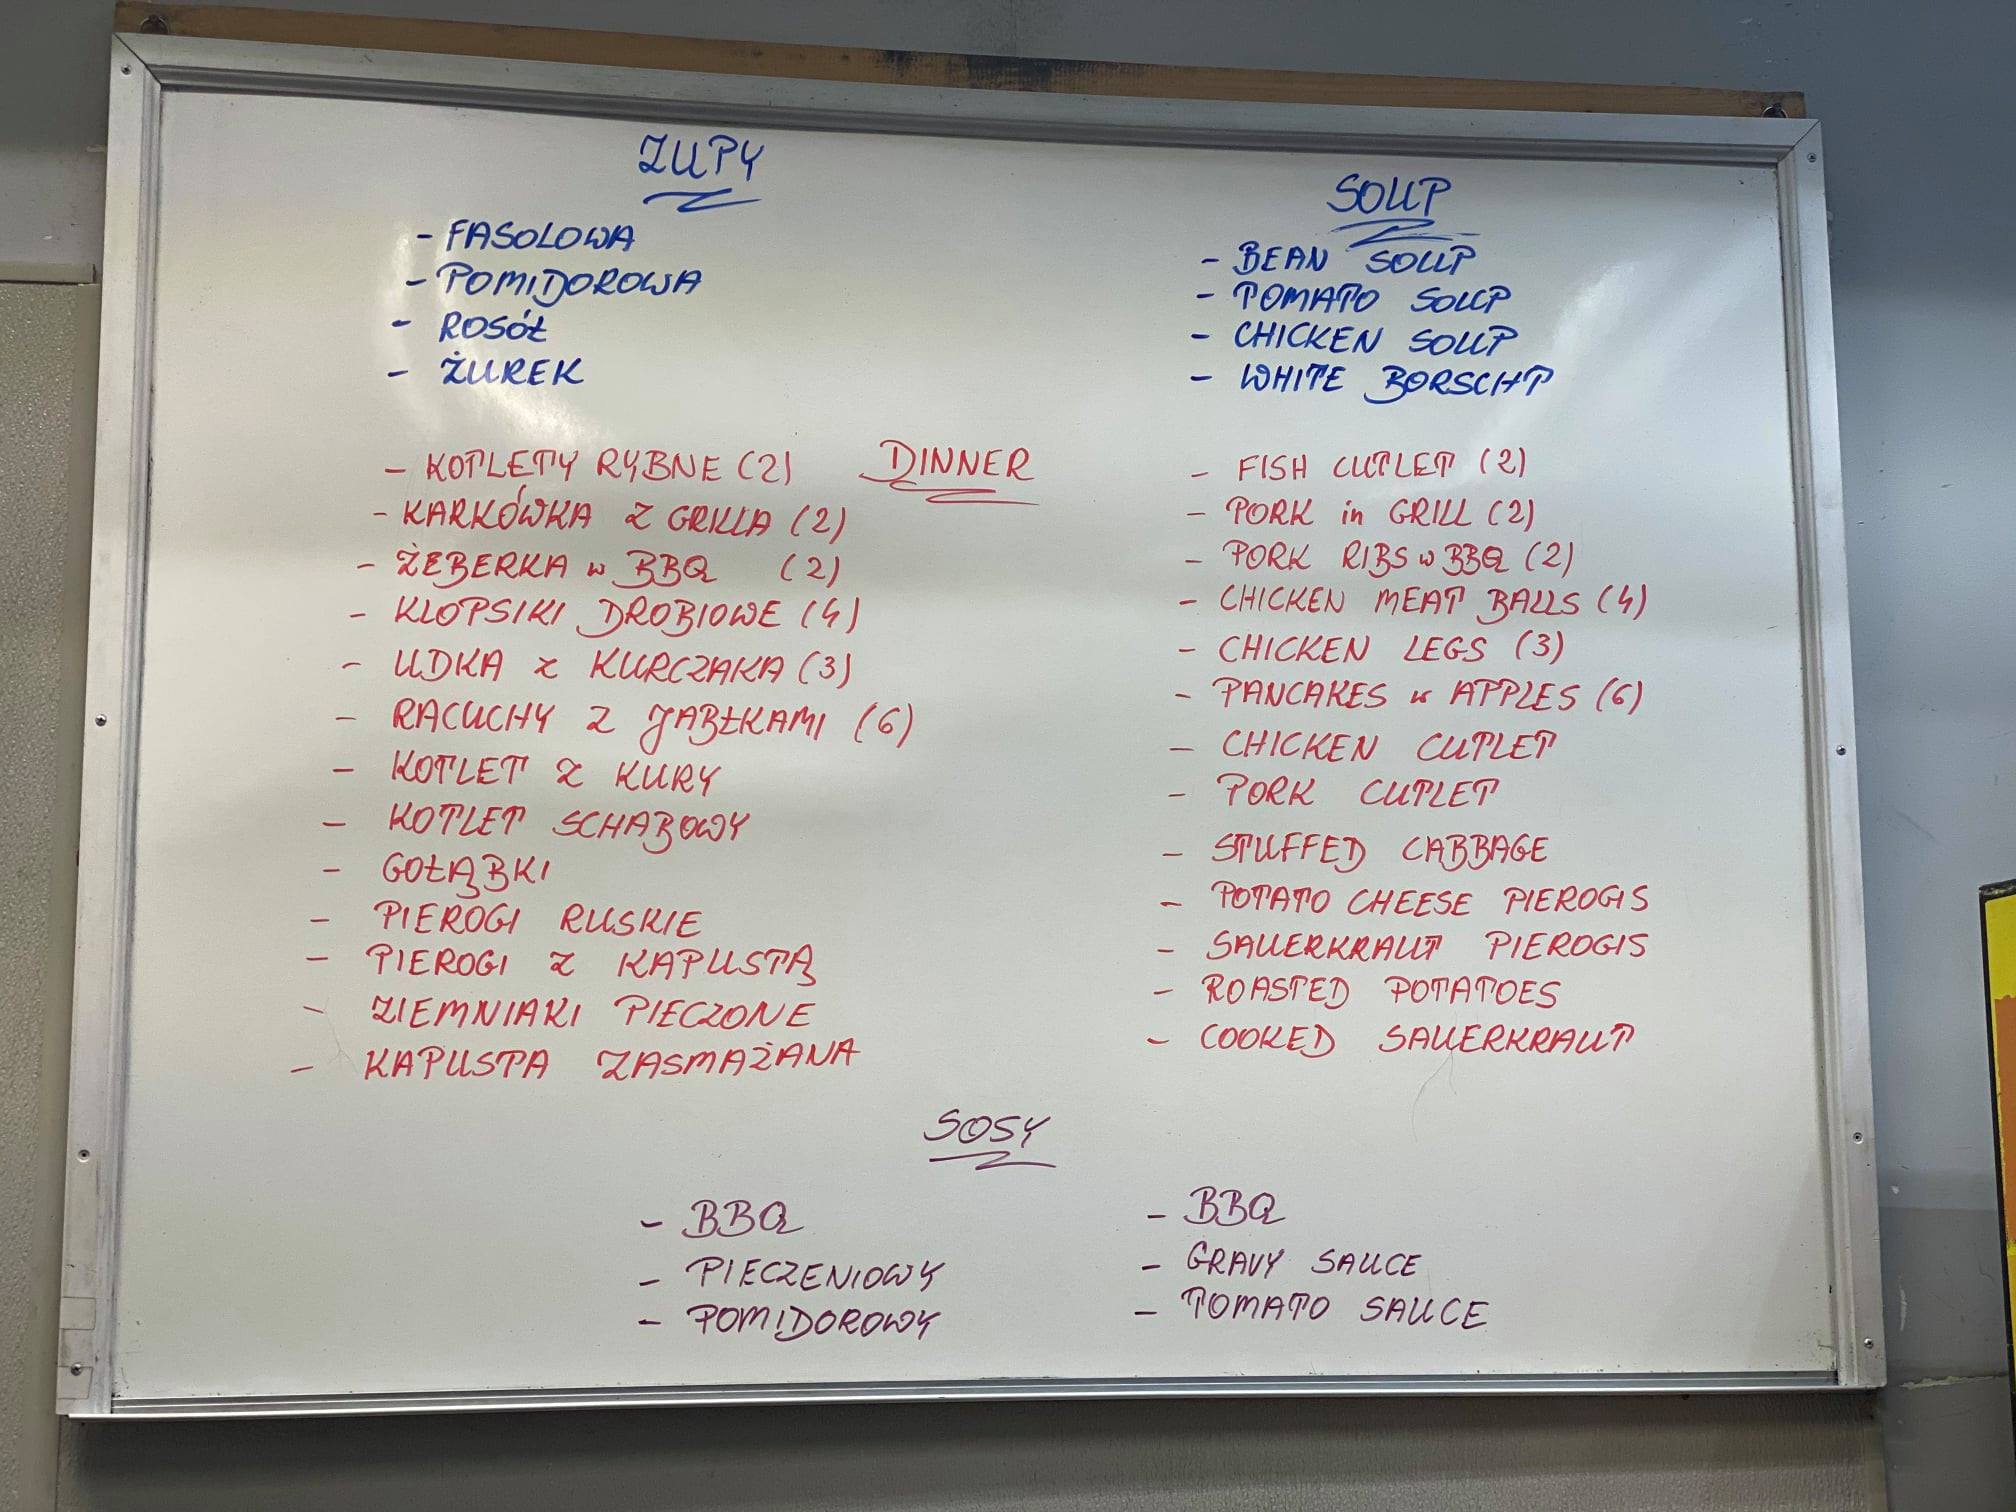 ZUPY
- FASOLOWA
- POMIDOROWA
- ROSÓŁ
- ŻUREK
SOUP
- BEAN SOUP
- TOMATO SOUP
- CHICKEN SOUP
- WHITE BORSCHT
DINNER
- KOTLETY RYBNE (2)
- KARKÓWKA Z GRILLA (2)
- ŻEBERKA w BBQ (2)
- KLOPSIKI DROBIOWE (4)
- UDKA z KURCZAKA (3)
- RACUCHY Z JABŁKAMI (6)
- KOTLET Z KURY
- KOTLET SCHABOWY
- GOŁĄBKI
- PIEROGI RUSKIE
- PIEROGI Z KAPUSTĄ
- ZIEMNIAKI PIECZONE
- KAPUSTA ZASMAŻANA
- FISH CUTLET (2)
- PORK in GRILL (2)
- PORK RIBS w BBQ (2)
- CHICKEN MEAT BALLS (4)
- CHICKEN LEGS (3)
- PANCAKES w APPLES (6)
- CHICKEN CUTLET
- PORK CUTLET
- STUFFED CABBAGE
- POTATO CHEESE PIEROGIS
- SAUERKRAUT PIEROGIS
- ROASTED POTATOES
- COOKED SAUERKRAUT
SOSY
- BBQ
- PIECZENIOWY
- POMIDOROWY
- BBQ
- GRAVY SAUCE
- TOMATO SAUCE